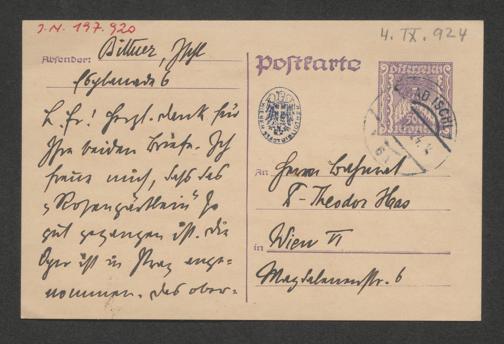 J.N. 197.920
4. IX. 924
Absender: Bittner, Ischl
Esplanade 6
Postkarte
L. Fr! Herzl. Dank für
Ihre beiden Briefe. Ich
freue mich, dass das
"Rosengärtlein" so
gut gegangen ist. Die
Oper ist in Prag ange-
nommen. Das ober-
Österreich
Kronen
BAD ISCHL
An Herrn
Theodor Haas
in Wien VI
Magdalenenstr. 6